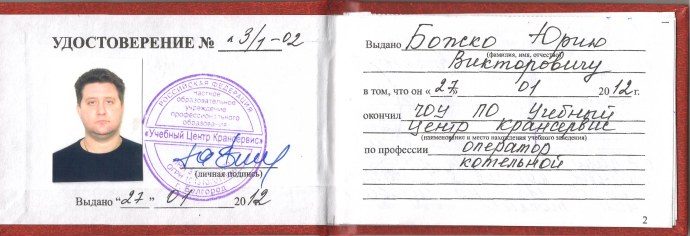 УДОСТОВЕРЕНИЕ № «3/1-02
РОССИЙСКАЯ ФЕДЕРАЦИЯ
Частное
образовательное
учреждение
профессионального
образования
«Учебный Центр Крансервис»
Белгород
(личная подпись)
Выдано "27" 01 2012
Выдано Божко Юрию
(фамилия, имя, отчество)
Викторовичу
в том, что он «27» 01 2012 г.
окончил ЧОУ ПО Учебный
Центр Крансервис
(наименование и место нахождения учебного заведения)
по профессии оператор
котельной
2